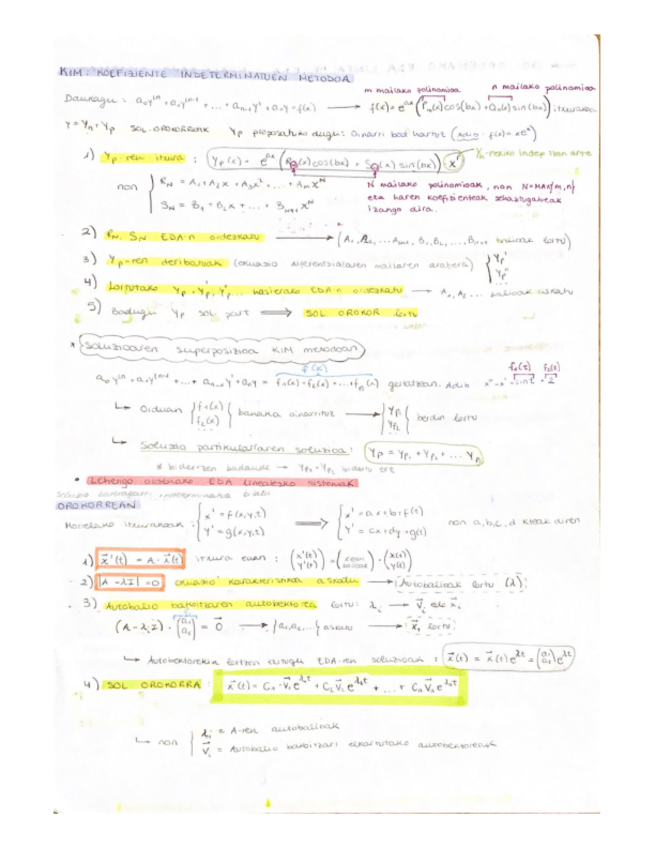 KIM: KOEFIZIENTE INDETERMINATUEN METODOA
m mailako polinomioa    n mailako polinomioa
Daukagu: a₀y⁽ⁿ⁾ + a₁y⁽ⁿ⁻¹⁾ + ... + aₙ₋₁y' + aₙy = f(x) → f(x) = e^{ax} (Pₘ(x)cos(bx) + Qₙ(x)sin(bx)) itxurakoa
y = yₕ + yₚ SOL. OROKORRAK yₚ proposatuko dugu: Oinarri bat hartuz (Adib: f(x) = xeˣ)
1) yₚ-ren itxura: yₚ(x) = e^{ax} (R_N(x)cos(bx) + S_N(x)sin(bx)) · xʳ
yₕ-rekiko indep izan arte
non { R_N = A₁ + A₂x + A₃x² + ... + Aₘx^N
S_N = B₁ + B₂x + ... + Bₙ₊₁x^N
N mailako polinomioak, non N=MAX{m,n}
eta haren koefizienteak zehaztugabeak
izango dira.
2) R_N, S_N EDA-n ordezkatu → (A₁, A₂, ... , B₁, B₂, ..., Bₙ₊₁ balioak lortu)
3) yₚ-ren deribatuak (ekuazio diferentzialaren mailaren arabera) { yₚ' yₚ'' ...
4) Lortutako yₚ, yₚ', yₚ''... hasierako EDA-n ordezkatu → A₁, A₂ ... balioak askatu
5) Badugu yₚ sol. part ⟹ SOL OROKOR lortu
* Soluzioaren superposizioa KIM metodoan
f(x)
a₀y⁽ⁿ⁾ + a₁y⁽ⁿ⁻¹⁾ + ... + aₙ₋₁y' + aₙy = f₁(x) + f₂(x) + ... + fₙ(x) geratzean. Adib: x'' - x' = sin t + 2
f₁(t) f₂(t)
↳ Orduan { f₁(x) f₂(x) ... } banaka oinarrituz → { yₚ₁ yₚ₂ ... } berdin lortu
↳ Soluzio partikularraren soluzioa: yₚ = yₚ₁ + yₚ₂ + ... yₙ
• Lehengo ordenako EDA linealezko sistemak
OROKORREAN
Honelako itxurakoak: { x' = f(x,y,t) y' = g(x,y,t) ⟹ { x' = ax + by + f(t) y' = cx + dy + g(t) non a,b,c,d kteak diren
1) x⃗'(t) = A · x⃗(t) itxura eman: (x'(t) y'(t)) = (koef. balioak) · (x(t) y(t))
2) |A - λI| = 0 ekuazio karakteristikoa askatu → Autobalioak lortu (λ)
3) Autobalio bakoitzaren autobektorea lortu: λᵢ → v⃗ᵢ edo x⃗ᵢ
(A - λᵢI) · (a₁ a₂) = 0⃗ → {a₁, a₂, ...} askatu → x⃗ᵢ lortu
↳ Autobektorekin lortzen ditugu EDA-ren soluzioak: x⃗(t) = x⃗(t)e^{λt} = (a₁ a₂)e^{λt}
4) SOL OROKORRA: x⃗(t) = C₁·v⃗₁e^{λ₁t} + C₂v⃗₂e^{λ₂t} + ... + Cₙv⃗ₙe^{λₙt}
↳ non { λᵢ = A-ren autobalioak
v⃗ᵢ = Autobalio bakoitzari elkartutako autobektoreak